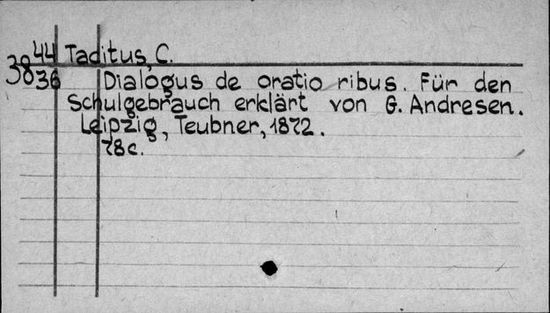 44 Taditus, C.
3836 Dialogus de oratio ribus. Für den
Schulgebrauch erklärt von G. Andresen.
Leipzig, Teubner, 1872.
78c.